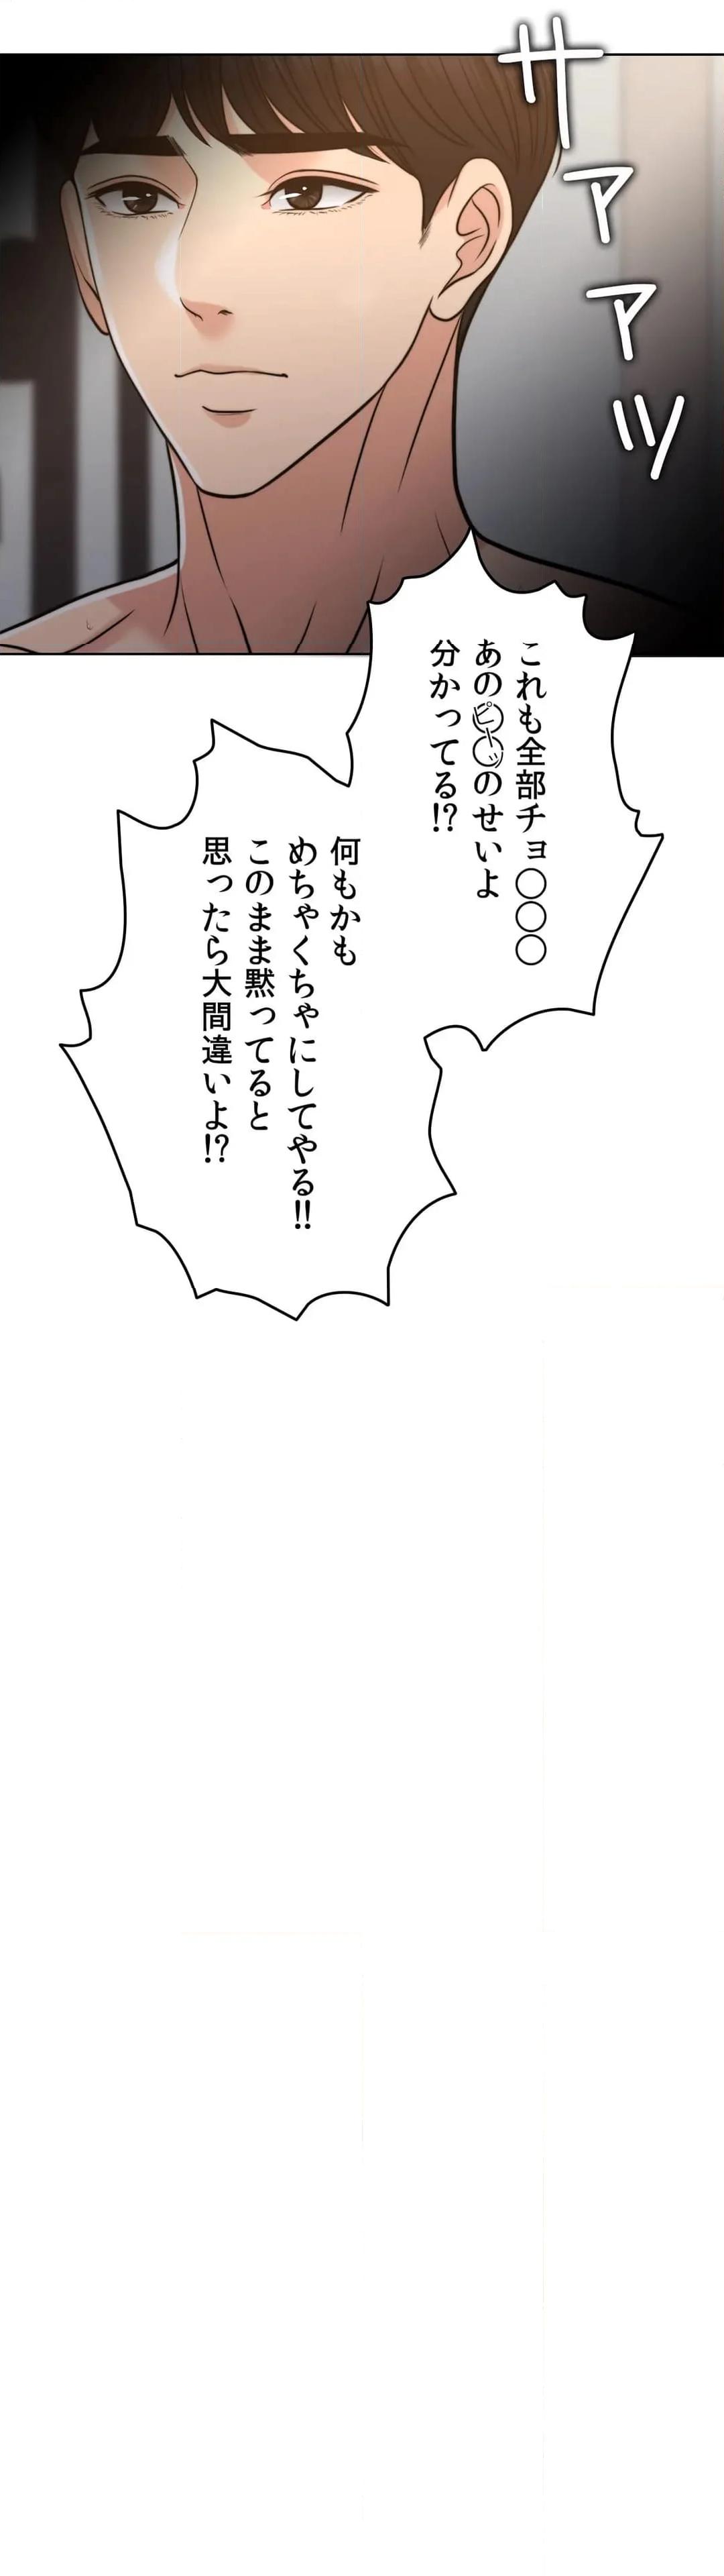 サァァッ
これも全部チョ〇〇〇
あの〇〇のせいよ
分かってる!?
何もかも
めちゃくちゃにしてやる!!
このまま黙ってると
思ったら大間違いよ!?